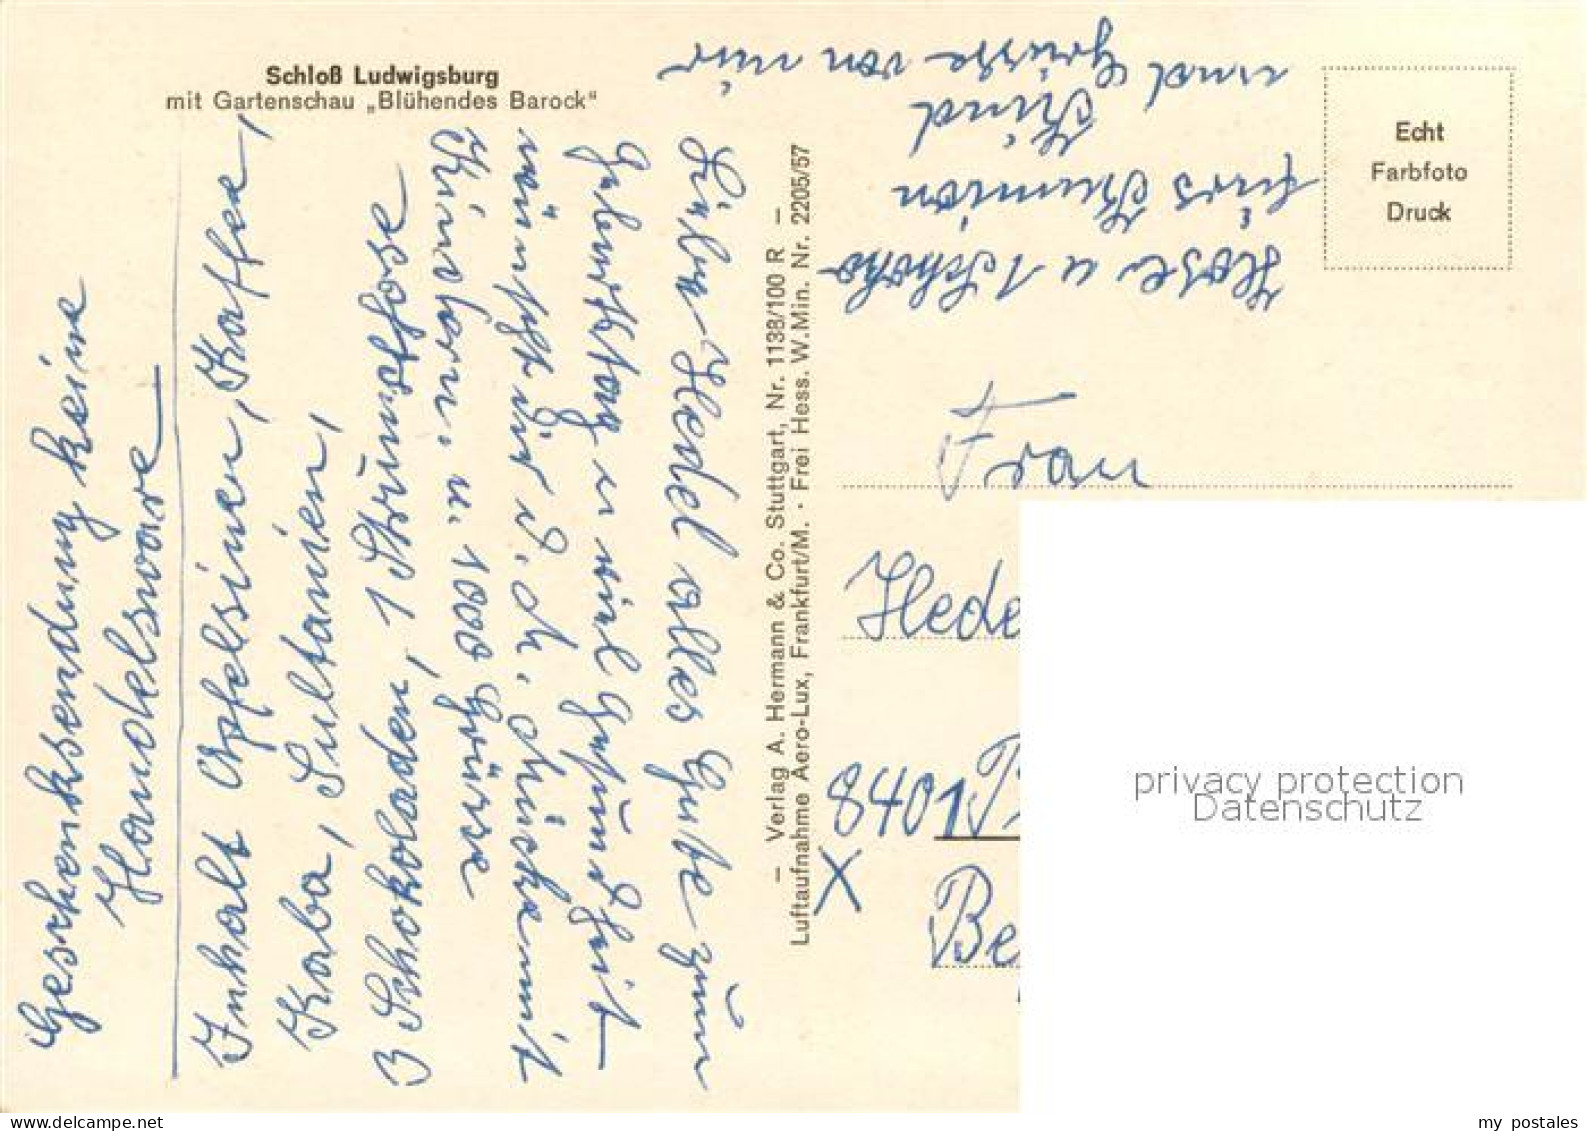 Schloß Ludwigsburg
mit Gartenschau „Blühendes Barock“
Geschenksendung keine
Handelsware
Inhalt Apfelsinen, Kaffee,
Kaba, Sultanien,
3 Schokoladen, 1 Strumpfhose
Liebe Hedel alles Gute zum
Geburtstag u viel Gesundheit
wünscht dir d. M. Mücke mit
Kindern. u. 1000 Grüsse
Hose u 1 Schoko
fürs
Kind
und Grüsse von mir
— Verlag A. Hermann & Co. Stuttgart, Nr. 1138/100 R —
Luftaufnahme Aero-Lux, Frankfurt/M. · Frei Hess. W.Min. Nr. 2205/57
Echt
Farbfoto
Druck
Frau
Hede
8401
X
Be
privacy protection
Datenschutz
my postales